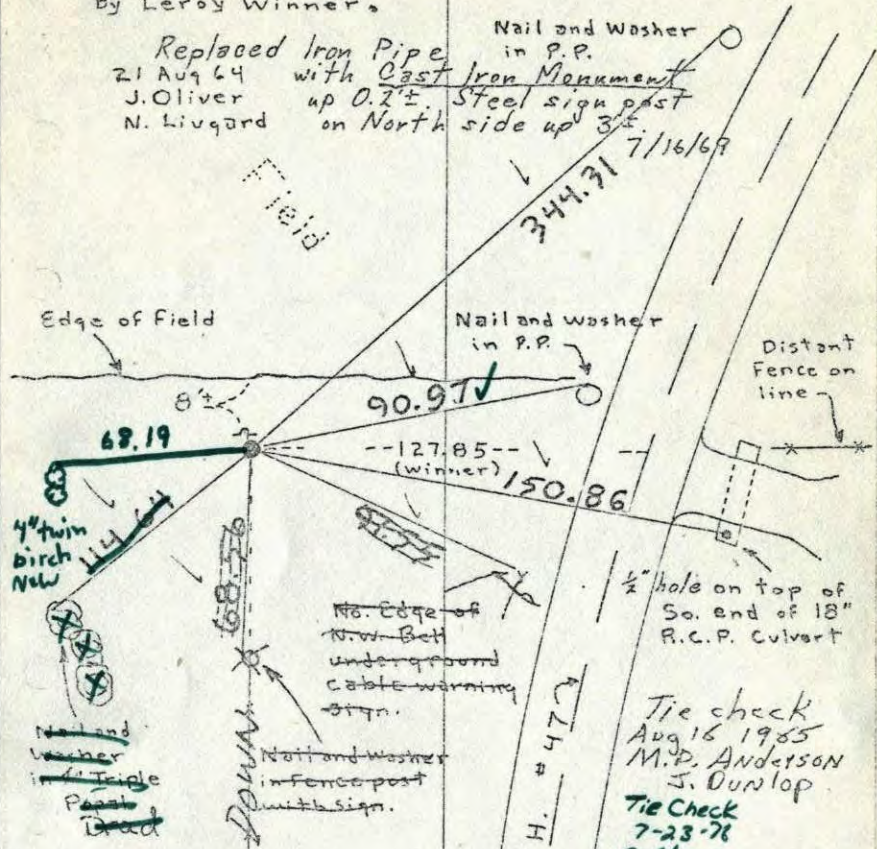 by Leroy Winner.
Replaced Iron Pipe
21 Aug 64 with Cast Iron Monument
J. Oliver up 0.2'±. Steel sign post
N. Livgard on North side up 3'±
7/16/69
Nail and Washer
in P.P.
Field
344.31
Edge of Field
Nail and Washer
in P.P.
Distant
Fence on
line
8'±
90.97 ✓
68.19
--127.85--
(Winner)
150.86
4" twin
birch
New
68.56
No. Edge of
N.W. Bell
underground
cable warning
sign.
½" hole on top of
So. end of 18"
R.C.P. Culvert
Nail and
Washer
in Triple
Nail and Washer
in fence post
with sign.
DOWN
H. #47
Tie check
Aug 16 1965
M.P. Anderson
J. Dunlop
Tie Check
7-23-76